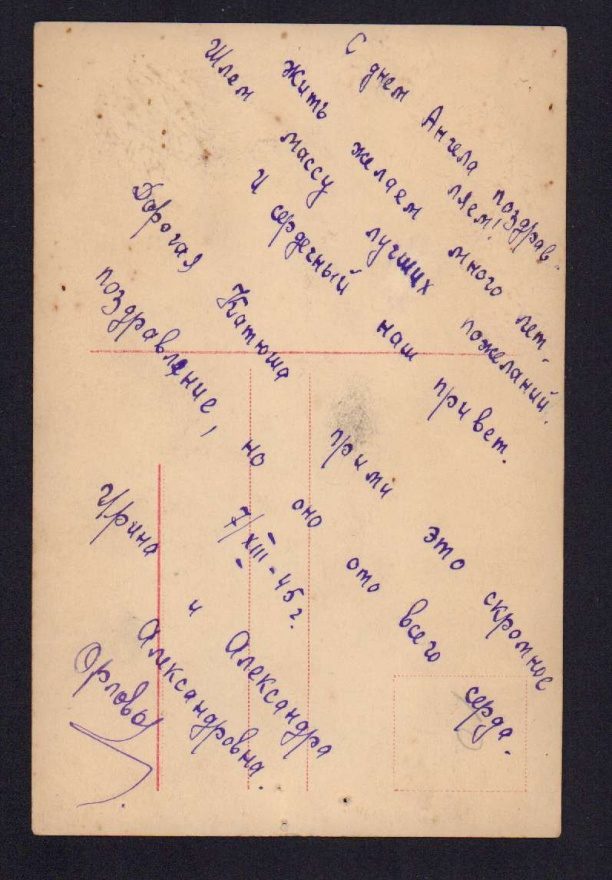 С днем Ангела поздрав-
ляем!
Жить желаем много лет.
Шлем массу лучших пожеланий.
И сердечный наш привет.
Дорогая Катюша прими это скромное
поздравление, но оно ото всего серда.
7/XIII-45г.
Ирина и Александра
Александровна.
Орловы